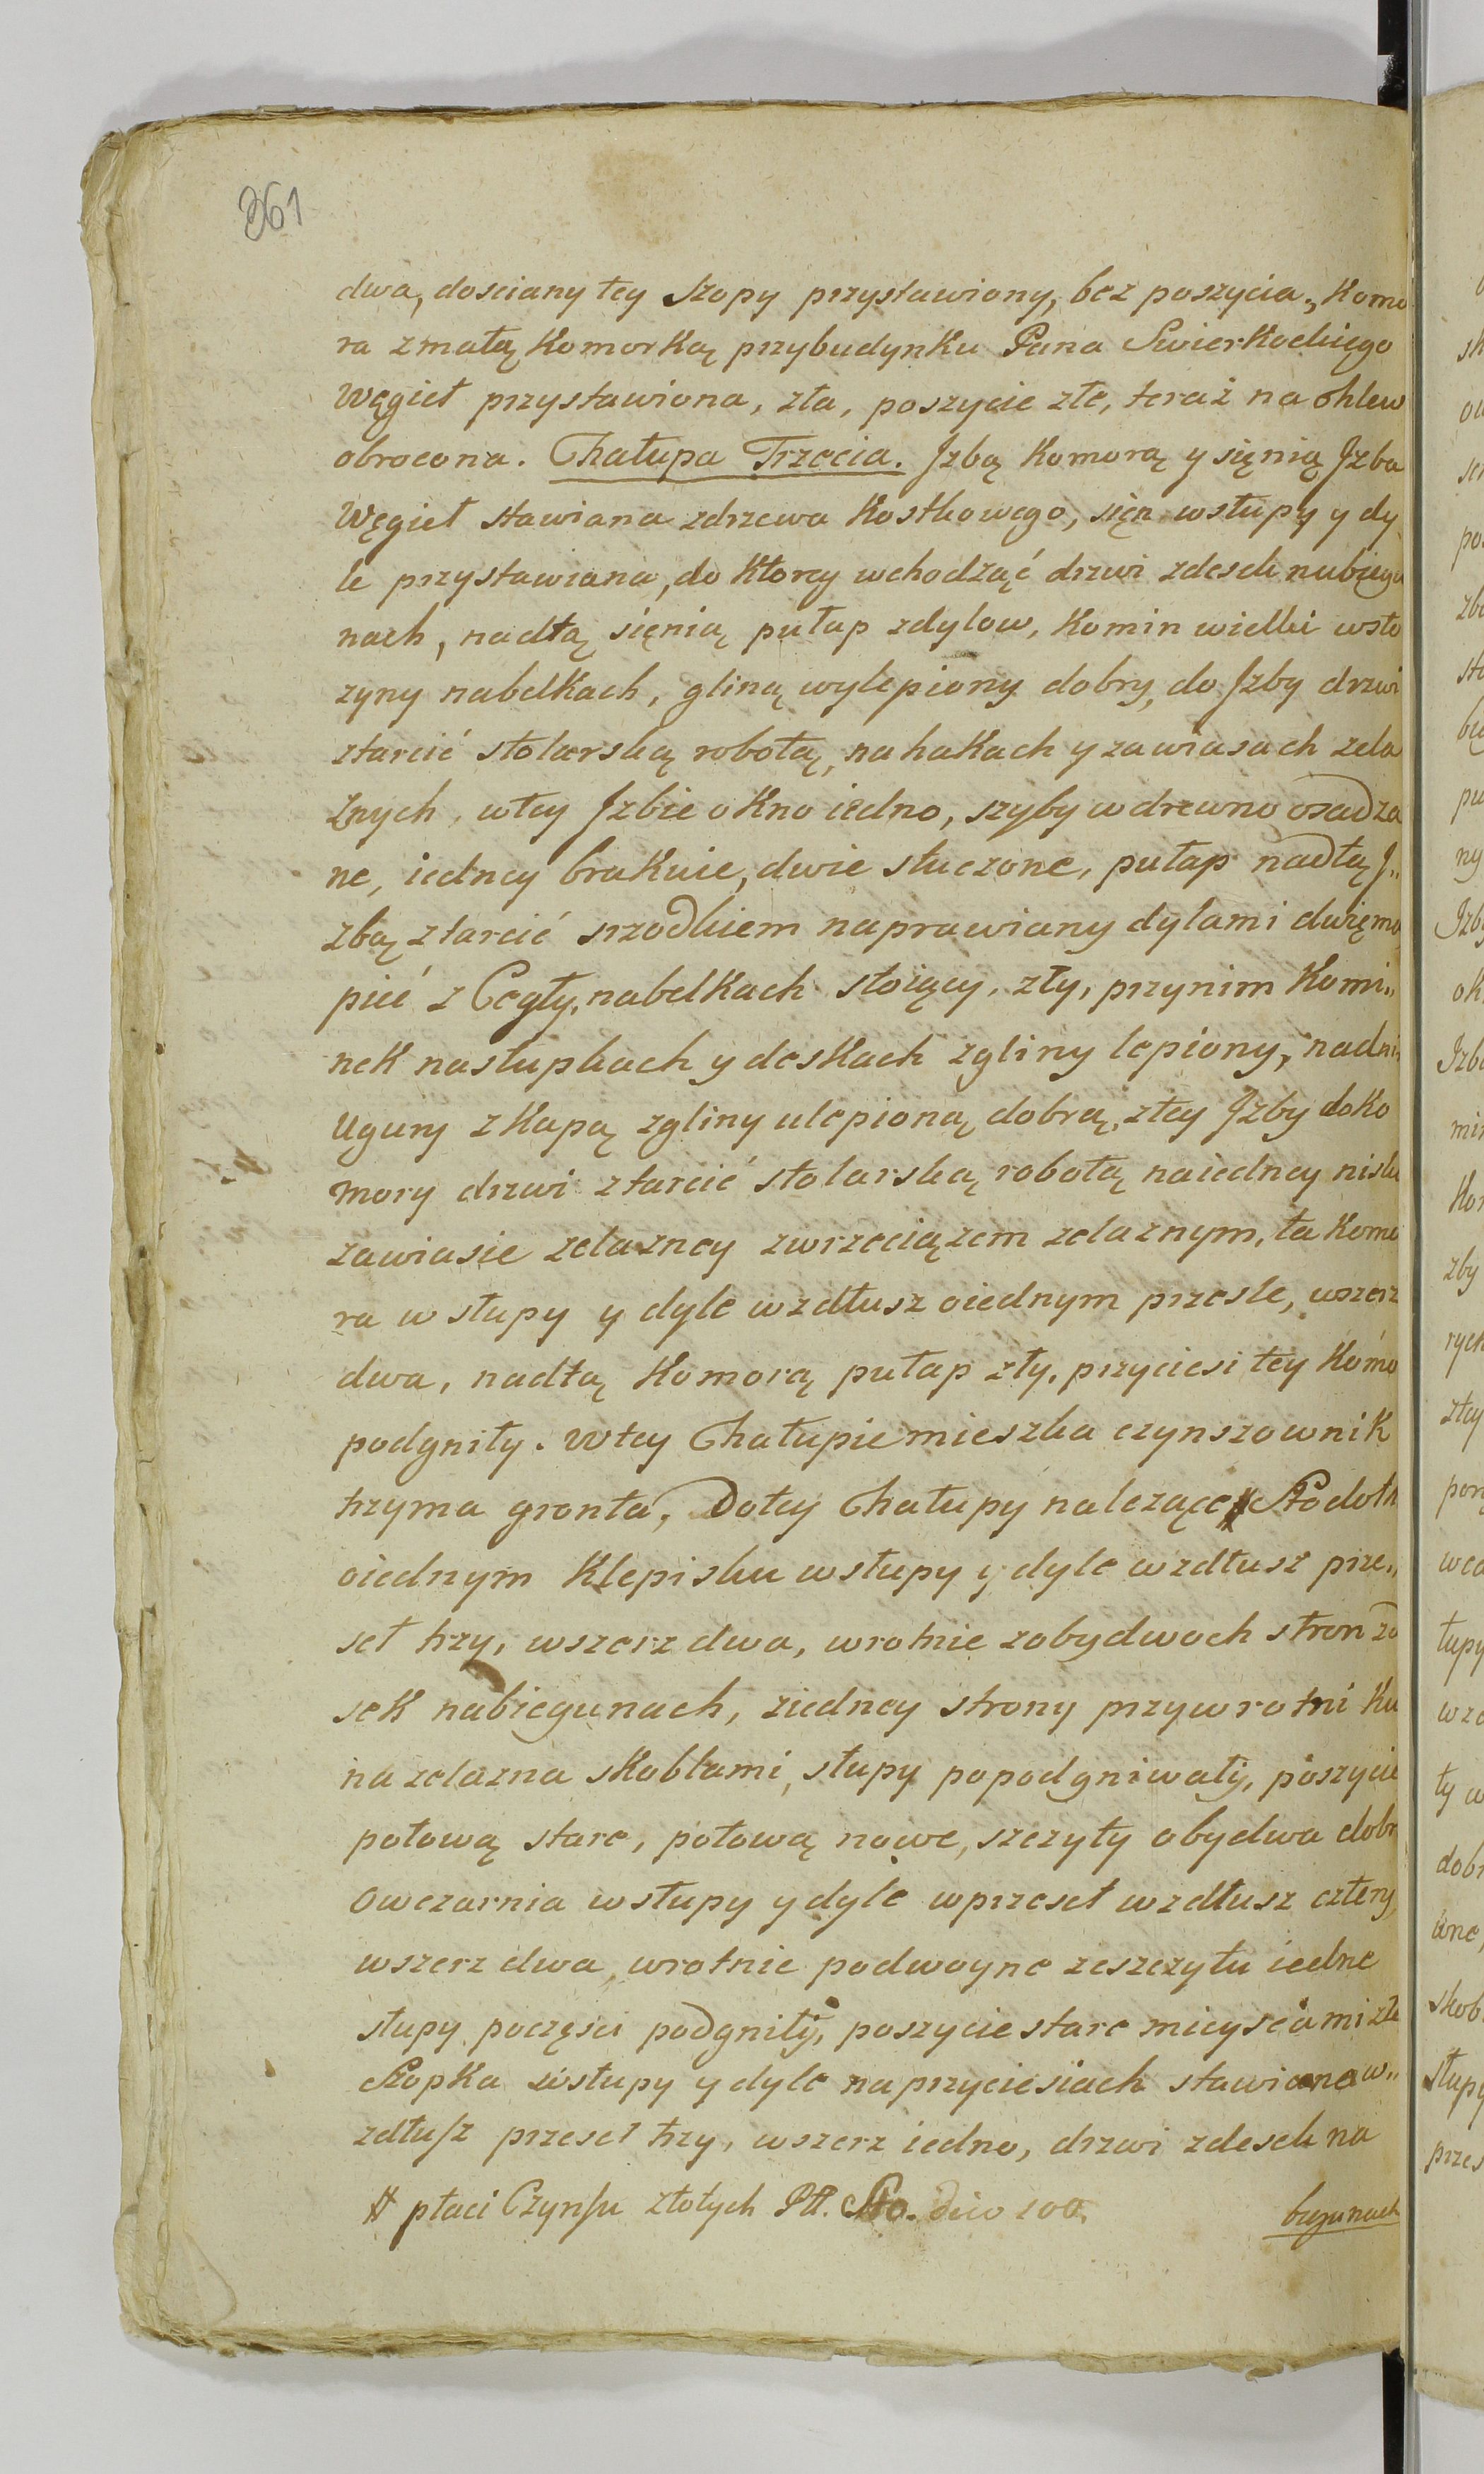 361
dwa, dosciany tey Szopy przystawiony, bez poszycia„ Komo
ra z małą Komorką przybudynku Pana Swierkockiego
Węgieł przystawiona, zła, poszycie złe, teraz na Chlew
obrocona. Chałupa Trzecia. Jzbą Komorą y sięnią, Jzba
Węgieł stawiana zdrzewa Kostkowego, sięn wsłupy y dy
le przystawiana, do Ktorey wchodząć drzwi zdesek nabiegu
nach, nadtą sięnią pułap zdylow, Komin wielki wsto
zyny nabelkach, gliną wylepiony dobry, do Jzby drzwi
ztarcić stolarską robotą, na hakach y zawiasach zela
Znych, wtey Jzbie oKno iedno, szyby w drewno osadza
ne, iedney brakuie, dwie stuczone, pułap nadtą J„
zbą ztarcić srzodkiem naprawiany dylami dwięma
pieć z Cegły, nabelkach stoiący, zły, przynim Komi„
nek nasłupkach y deskach zgliny lepiony, nadni
Ugury z Kapą zgliny ulepioną dobrą, ztey Jzby do Ko
mory drzwi ztarcić stolarską robotą naiedney nisk
zawiasie zelazney zwrzeciązem zelaznym, ta Komo
ra w słupy y dyle wzdłusz oiednym przesle, wszerz
dwa, nadtą Komorą pułap zły, przyciesi tey Komo
podgniły. Wtey Chałupie mieszka czynszownik
trzyma gronta, Dotey Chałupy nalezące # Stodoła
oiednym Klepisku wsłupy y dyle wzdłusz prze„
seł trzy, wszerz dwa, wrotnie zobydwoch stron zd
sek nabiegunach, ziedney strony przywrotni Ku
na zelazna skoblami, słupy popodgniwały, poszycie
połową stare, połową nowe, szczyty obydwa dobr
Owczarnia wsłupy y dyle wprzeseł wzdłusz cztery,
wszerz dwa, wrotnie podwoyne zeszczytu iedne
słupy poczęsci podgniły, poszycie stare mieyscami złe
Szopka wsłupy y dyle naprzyciesiach stawiana w„
zdłusz przeseł trzy, wszerz iedno, drzwi zdesek na
# płaci Czynszu złotych Pll. Sto. dico 100.
bugunach